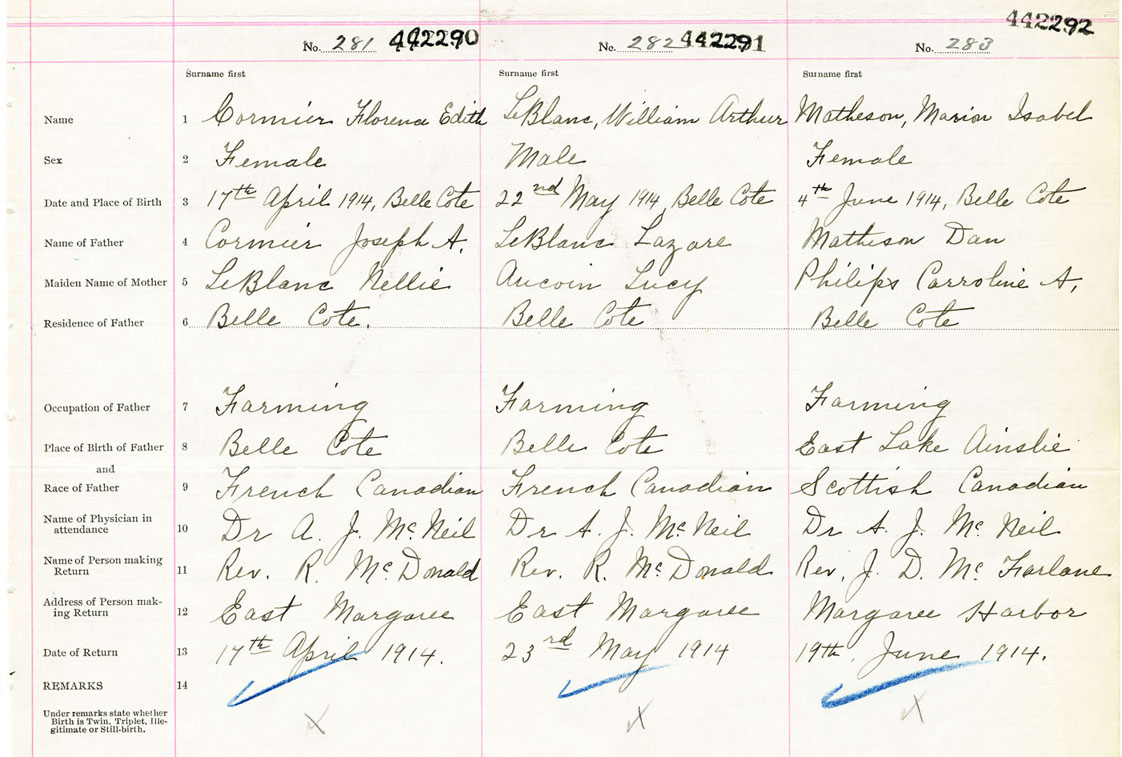 442292
No. 281 442290 No. 282 442291 No. 283
Surname first Surname first Surname first
Name 1 Cormier Florence Edith LeBlanc, William Arthur Matheson, Marion Isabel
Sex 2 Female Male Female
Date and Place of Birth 3 17th April 1914, Belle Cote 22nd May 1914, Belle Cote 4th June 1914, Belle Cote
Name of Father 4 Cormier Joseph A. LeBlanc Lazare Matheson Dan
Maiden Name of Mother 5 LeBlanc Nellie Aucoin Lucy Philips Carroline A.
Residence of Father 6 Belle Cote. Belle Cote Belle Cote
Occupation of Father 7 Farming Farming Farming
Place of Birth of Father 8 Belle Cote Belle Cote East Lake Ainslie
and
Race of Father 9 French Canadian French Canadian Scottish Canadian
Name of Physician in
attendance 10 Dr A. J. McNeil Dr A. J. McNeil Dr A. J. Mc Neil
Name of Person making
Return 11 Rev. R. McDonald Rev. R. McDonald Rev. J. D. McFarlane
Address of Person mak-
ing Return 12 East Margaree East Margaree Margaree Harbor
Date of Return 13 17th April 1914. 23rd May 1914 19th. June 1914.
REMARKS 14
Under remarks state whether
Birth is Twin, Triplet, Ille-
gitimate or Still-birth.
X X X